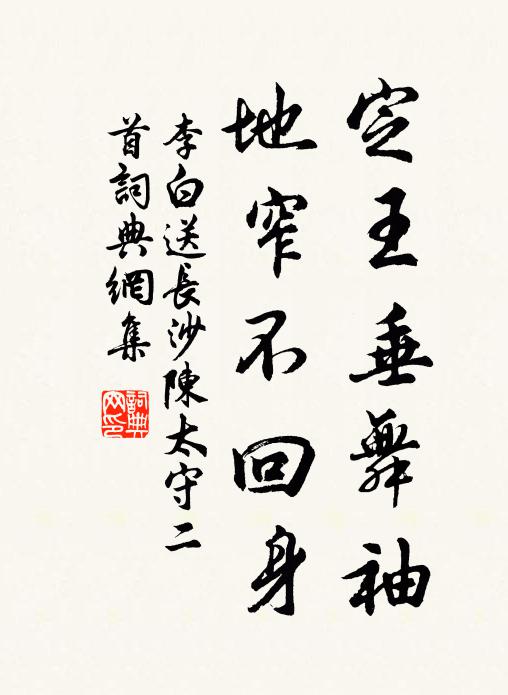 定王垂舞袖
地窄不回身
李白送長沙陳太守二
首詞典網集
詞典
网印